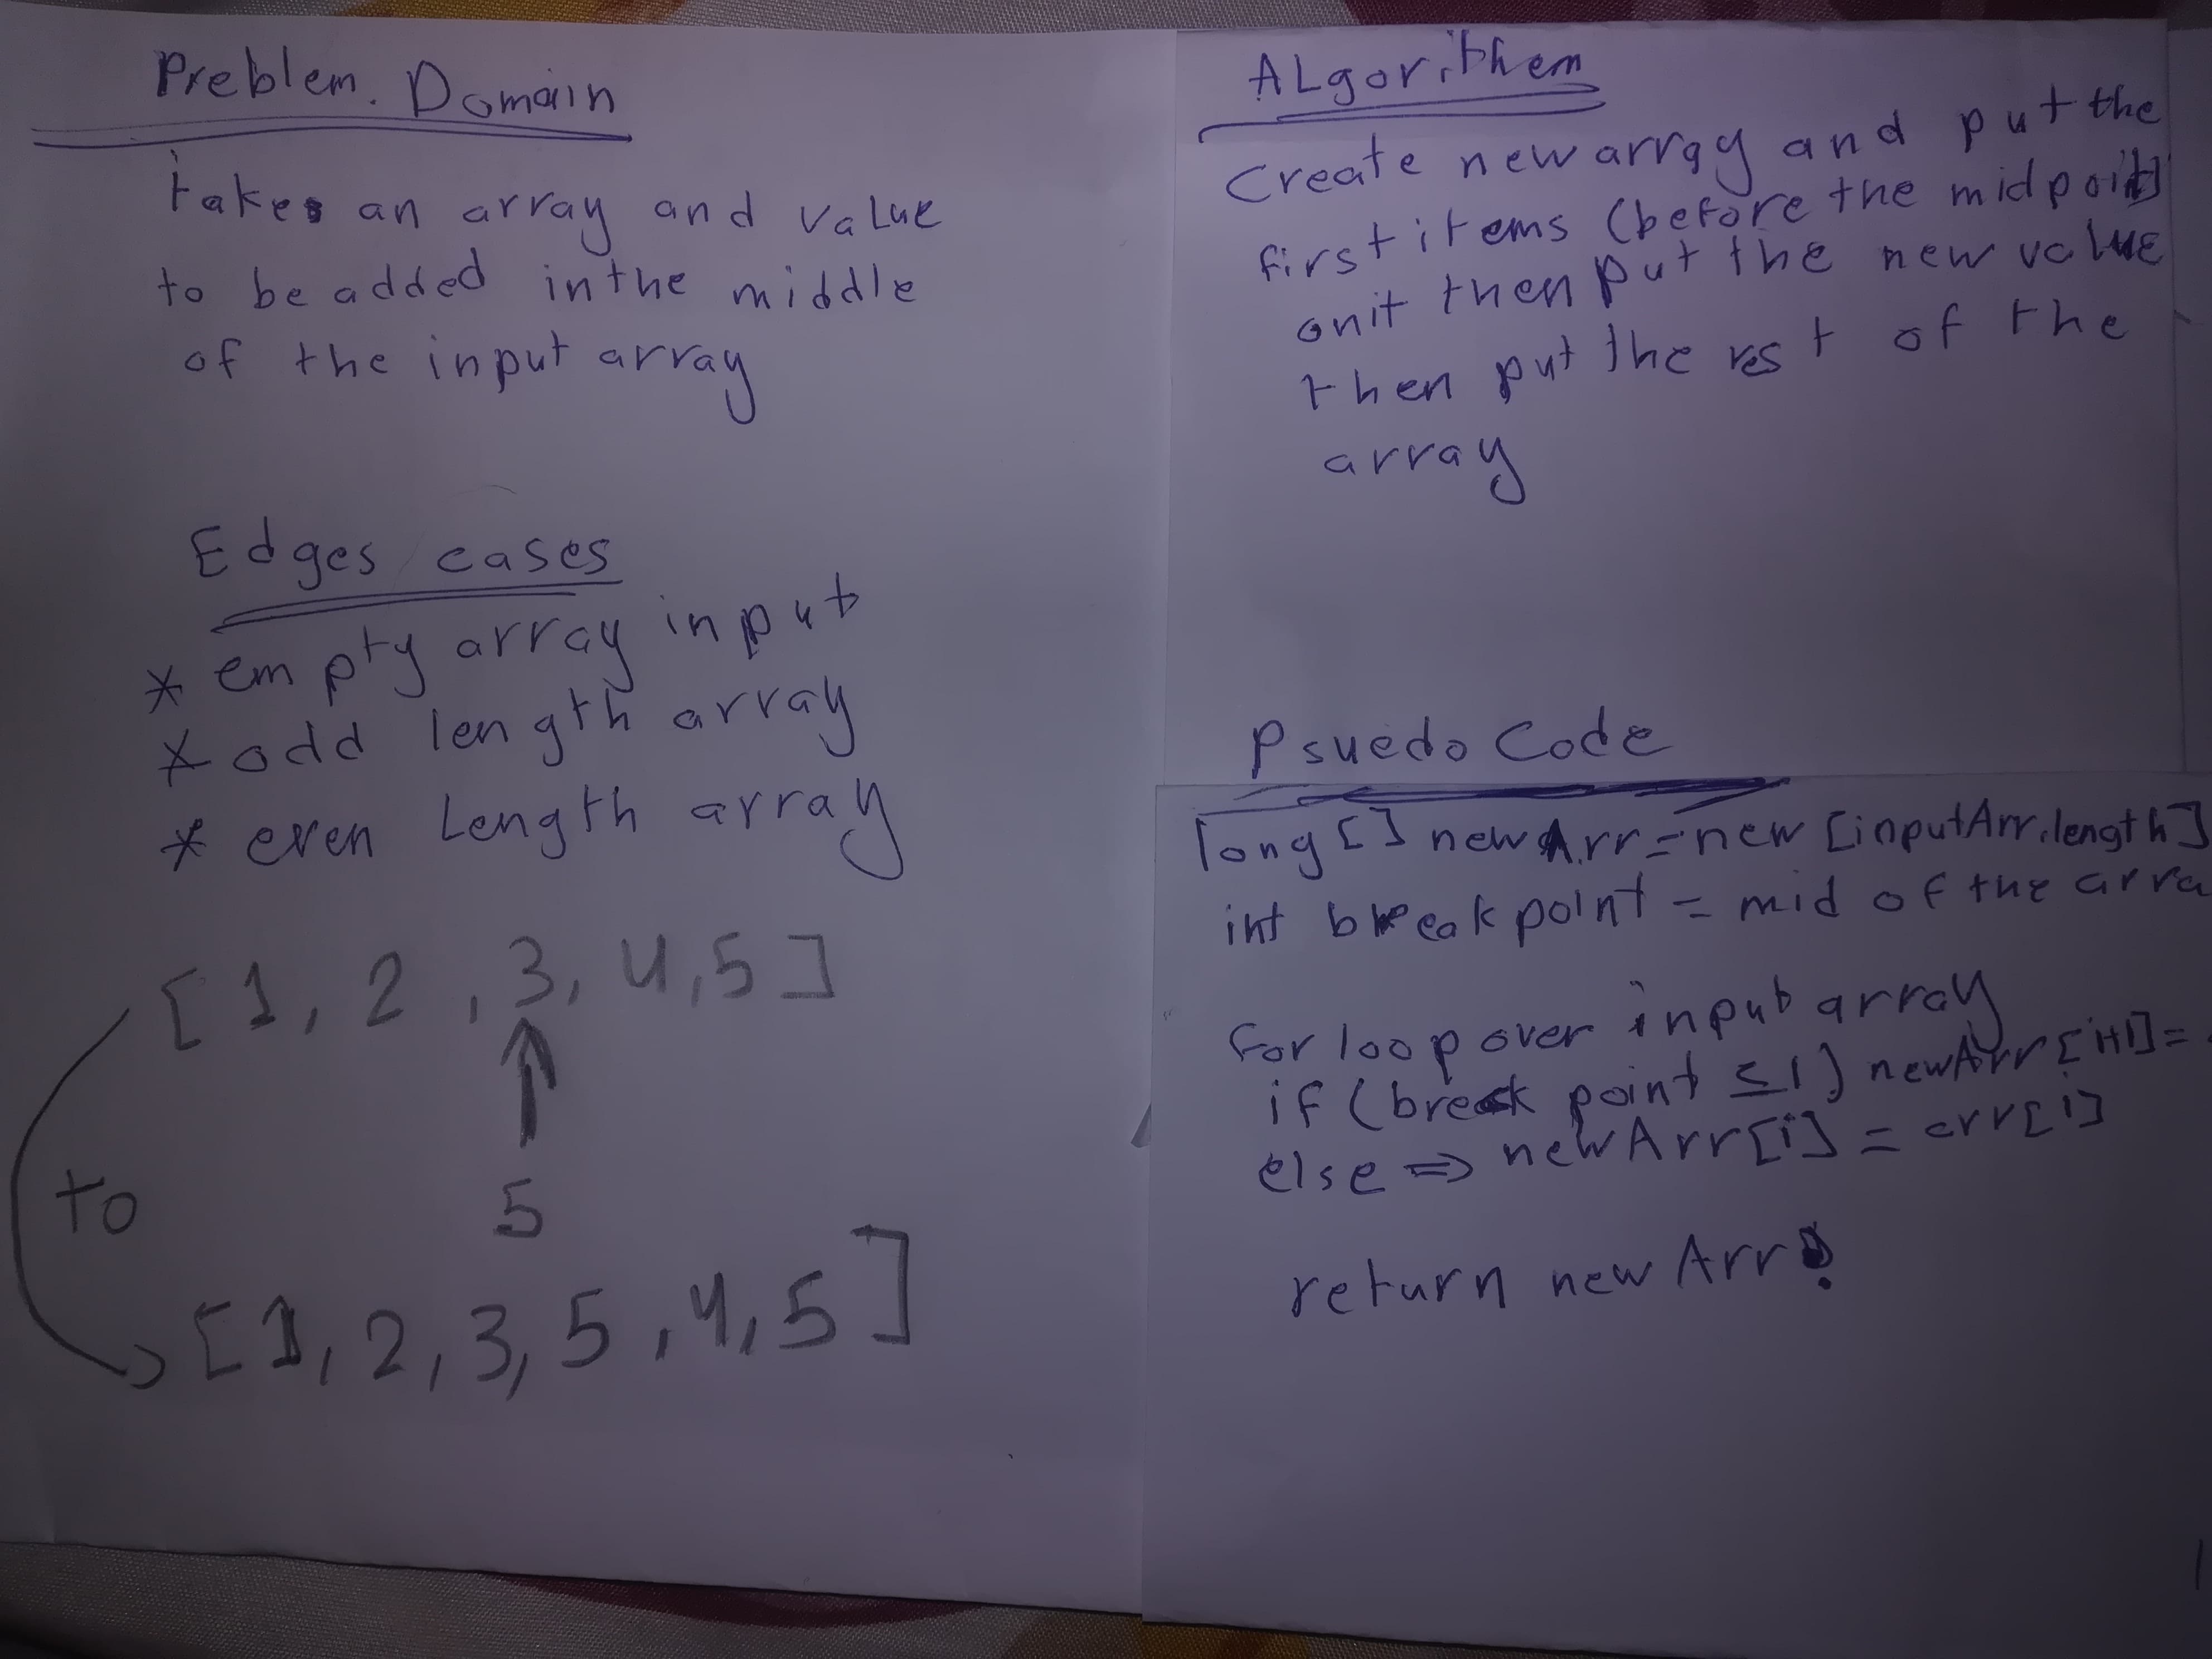 Preblem. Domain
takes an array and value
to be added in the middle
of the input array
Edges cases
* empty array input
* odd length array
* even Length array
[1, 2, 3, 4, 5]
5
to
[1, 2, 3, 5, 4, 5]
ALgorithem
Create new array and put the
first items (before the midpoint)
onit then put the new value
then put the rest of the
array
Psuedo Code
long[] newArr = new [inputArr.length]
int breakpoint = mid of the arra
for loop over input array
if (break point ≤ i) newArr[i+1]=
else => newArr[i] = arr[i]
return newArr